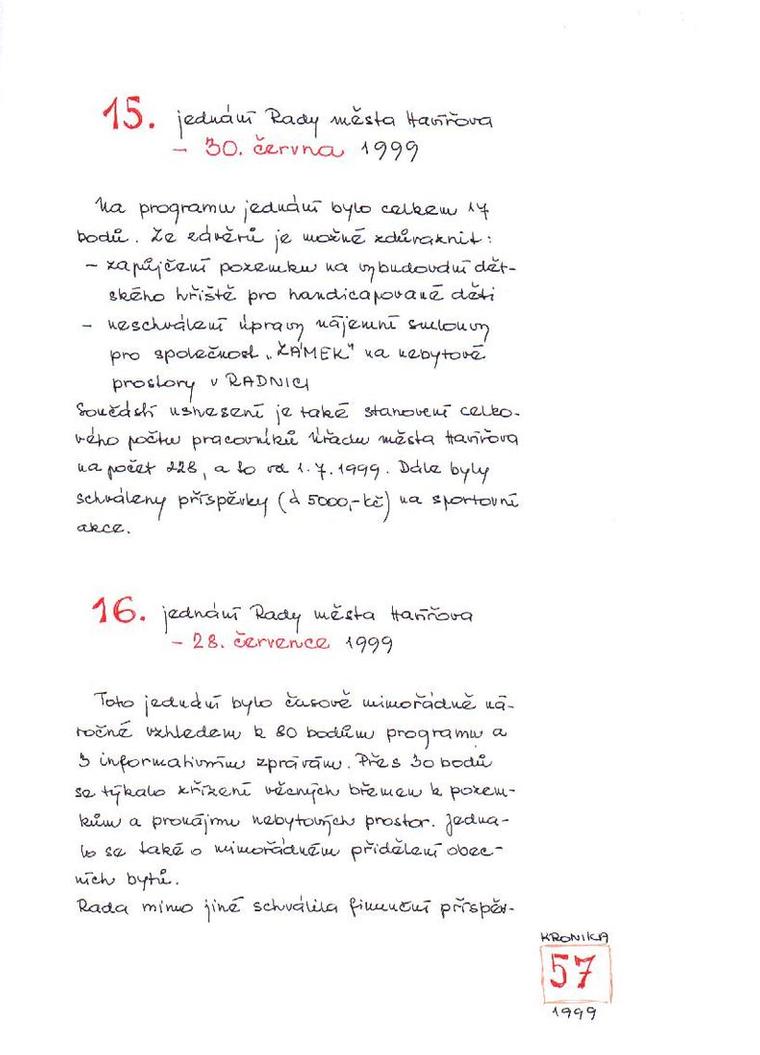 15. jednání Rady města Havířova
– 30. června 1999
Na programu jednání bylo celkem 17
bodů. Ze závěrů je možné zdůraznit:
– zapůjčení pozemku na vybudování dět-
ského hřiště pro handicapované děti
– neschválení úpravy nájemní smlouvy
pro společnost „ZÁMEK" na nebytové
prostory v RADNICI
Součástí usnesení je také stanovení celko-
vého počtu pracovníků Úřadu města Havířova
na počet 228, a to od 1.7.1999. Dále byly
schváleny příspěvky (à 5000,-kč) na sportovní
akce.
16. jednání Rady města Havířova
– 28. července 1999
Toto jednání bylo časově mimořádně ná-
ročné vzhledem k 80 bodům programu a
3 informativním zprávám. Přes 30 bodů
se týkalo zřízení věcných břemen k pozem-
kům a pronájmu nebytových prostor. Jedna-
lo se také o mimořádném přidělení obec-
ních bytů.
Rada mimo jiné schválila finanční příspěv-
KRONIKA
57
1999